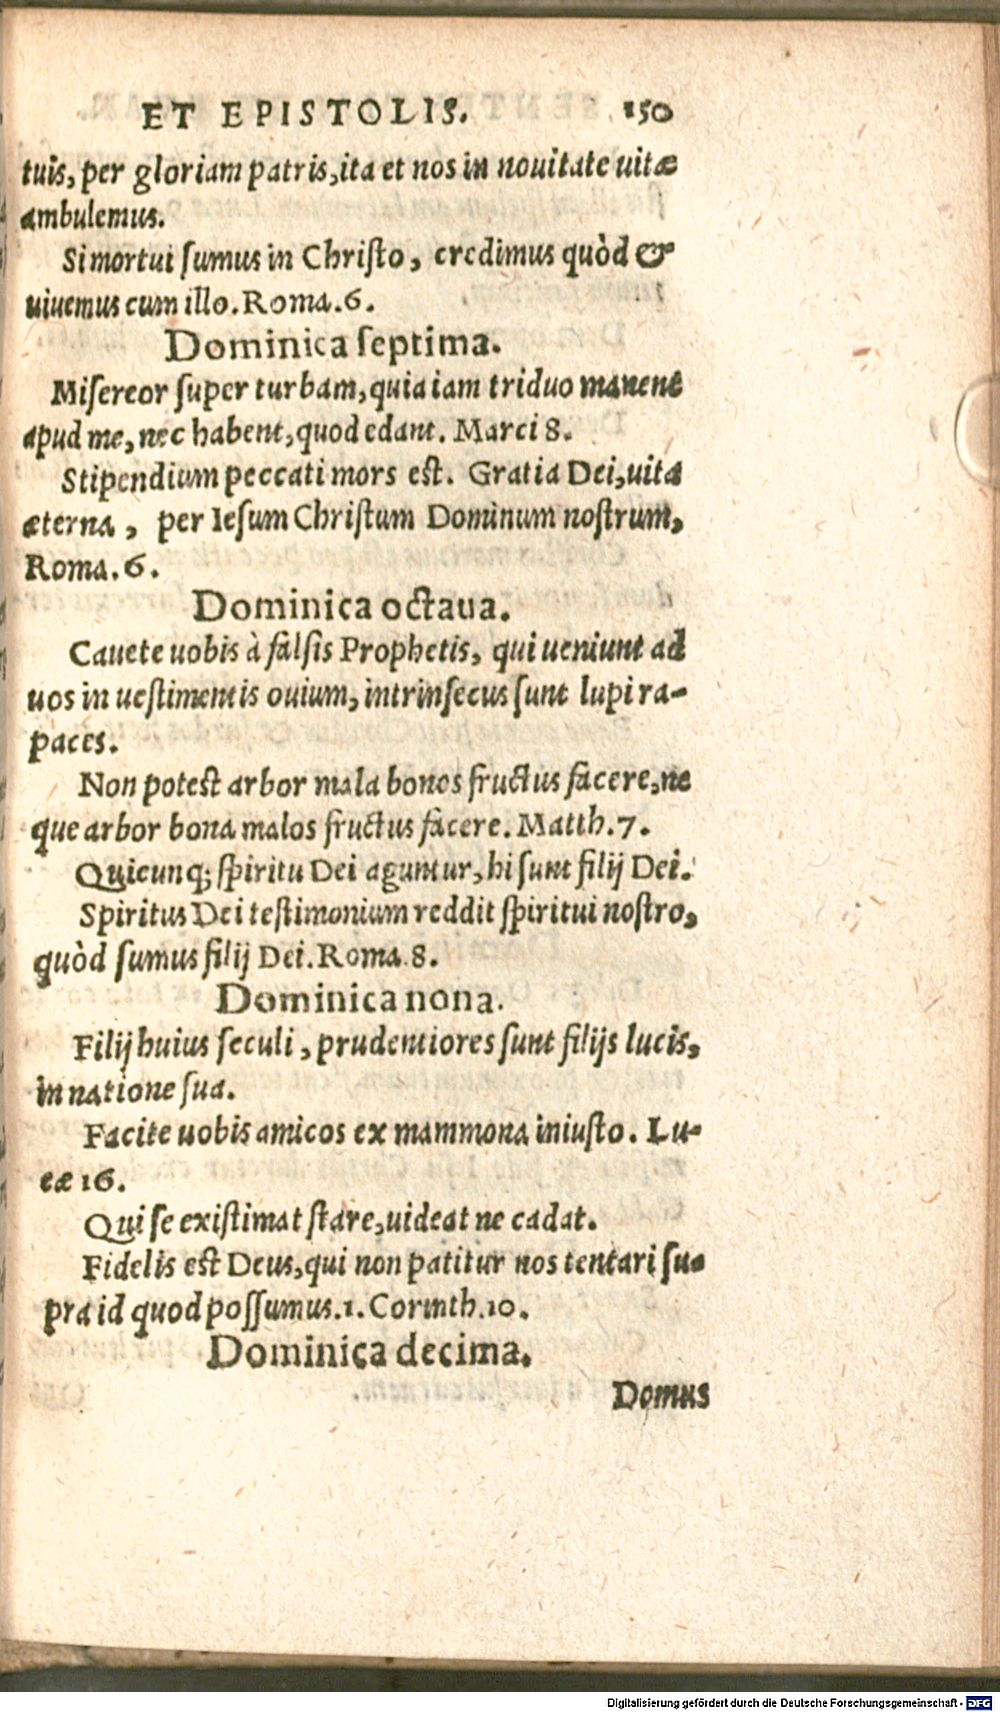 ET EPISTOLIS. 150
tuis, per gloriam patris, ita et nos in nouitate uitæ
ambulemus.
Si mortui sumus in Christo, credimus quòd &
uiuemus cum illo. Roma. 6.
Dominica septima.
Misereor super turbam, quia iam triduo manent
apud me, nec habent, quod edant. Marci 8.
Stipendium peccati mors est. Gratia Dei, uita
æterna, per Iesum Christum Dominum nostrum,
Roma. 6.
Dominica octaua.
Cauete uobis à falsis Prophetis, qui ueniunt ad
uos in uestimentis ouium, intrinsecus sunt lupi ra-
paces.
Non potest arbor mala bonos fructus facere, ne
que arbor bona malos fructus facere. Matth. 7.
Quicunq; spiritu Dei aguntur, hi sunt filij Dei.
Spiritus Dei testimonium reddit spiritui nostro,
quòd sumus filij Dei. Roma. 8.
Dominica nona.
Filij huius seculi, prudentiores sunt filijs lucis,
in natione sua.
Facite uobis amicos ex mammona iniusto. Lu-
cæ 16.
Qui se existimat stare, uideat ne cadat.
Fidelis est Deus, qui non patitur nos tentari su-
pra id quod possumus. 1. Corinth. 10.
Dominica decima.
Domus
Digitalisierung gefördert durch die Deutsche Forschungsgemeinschaft - DFG